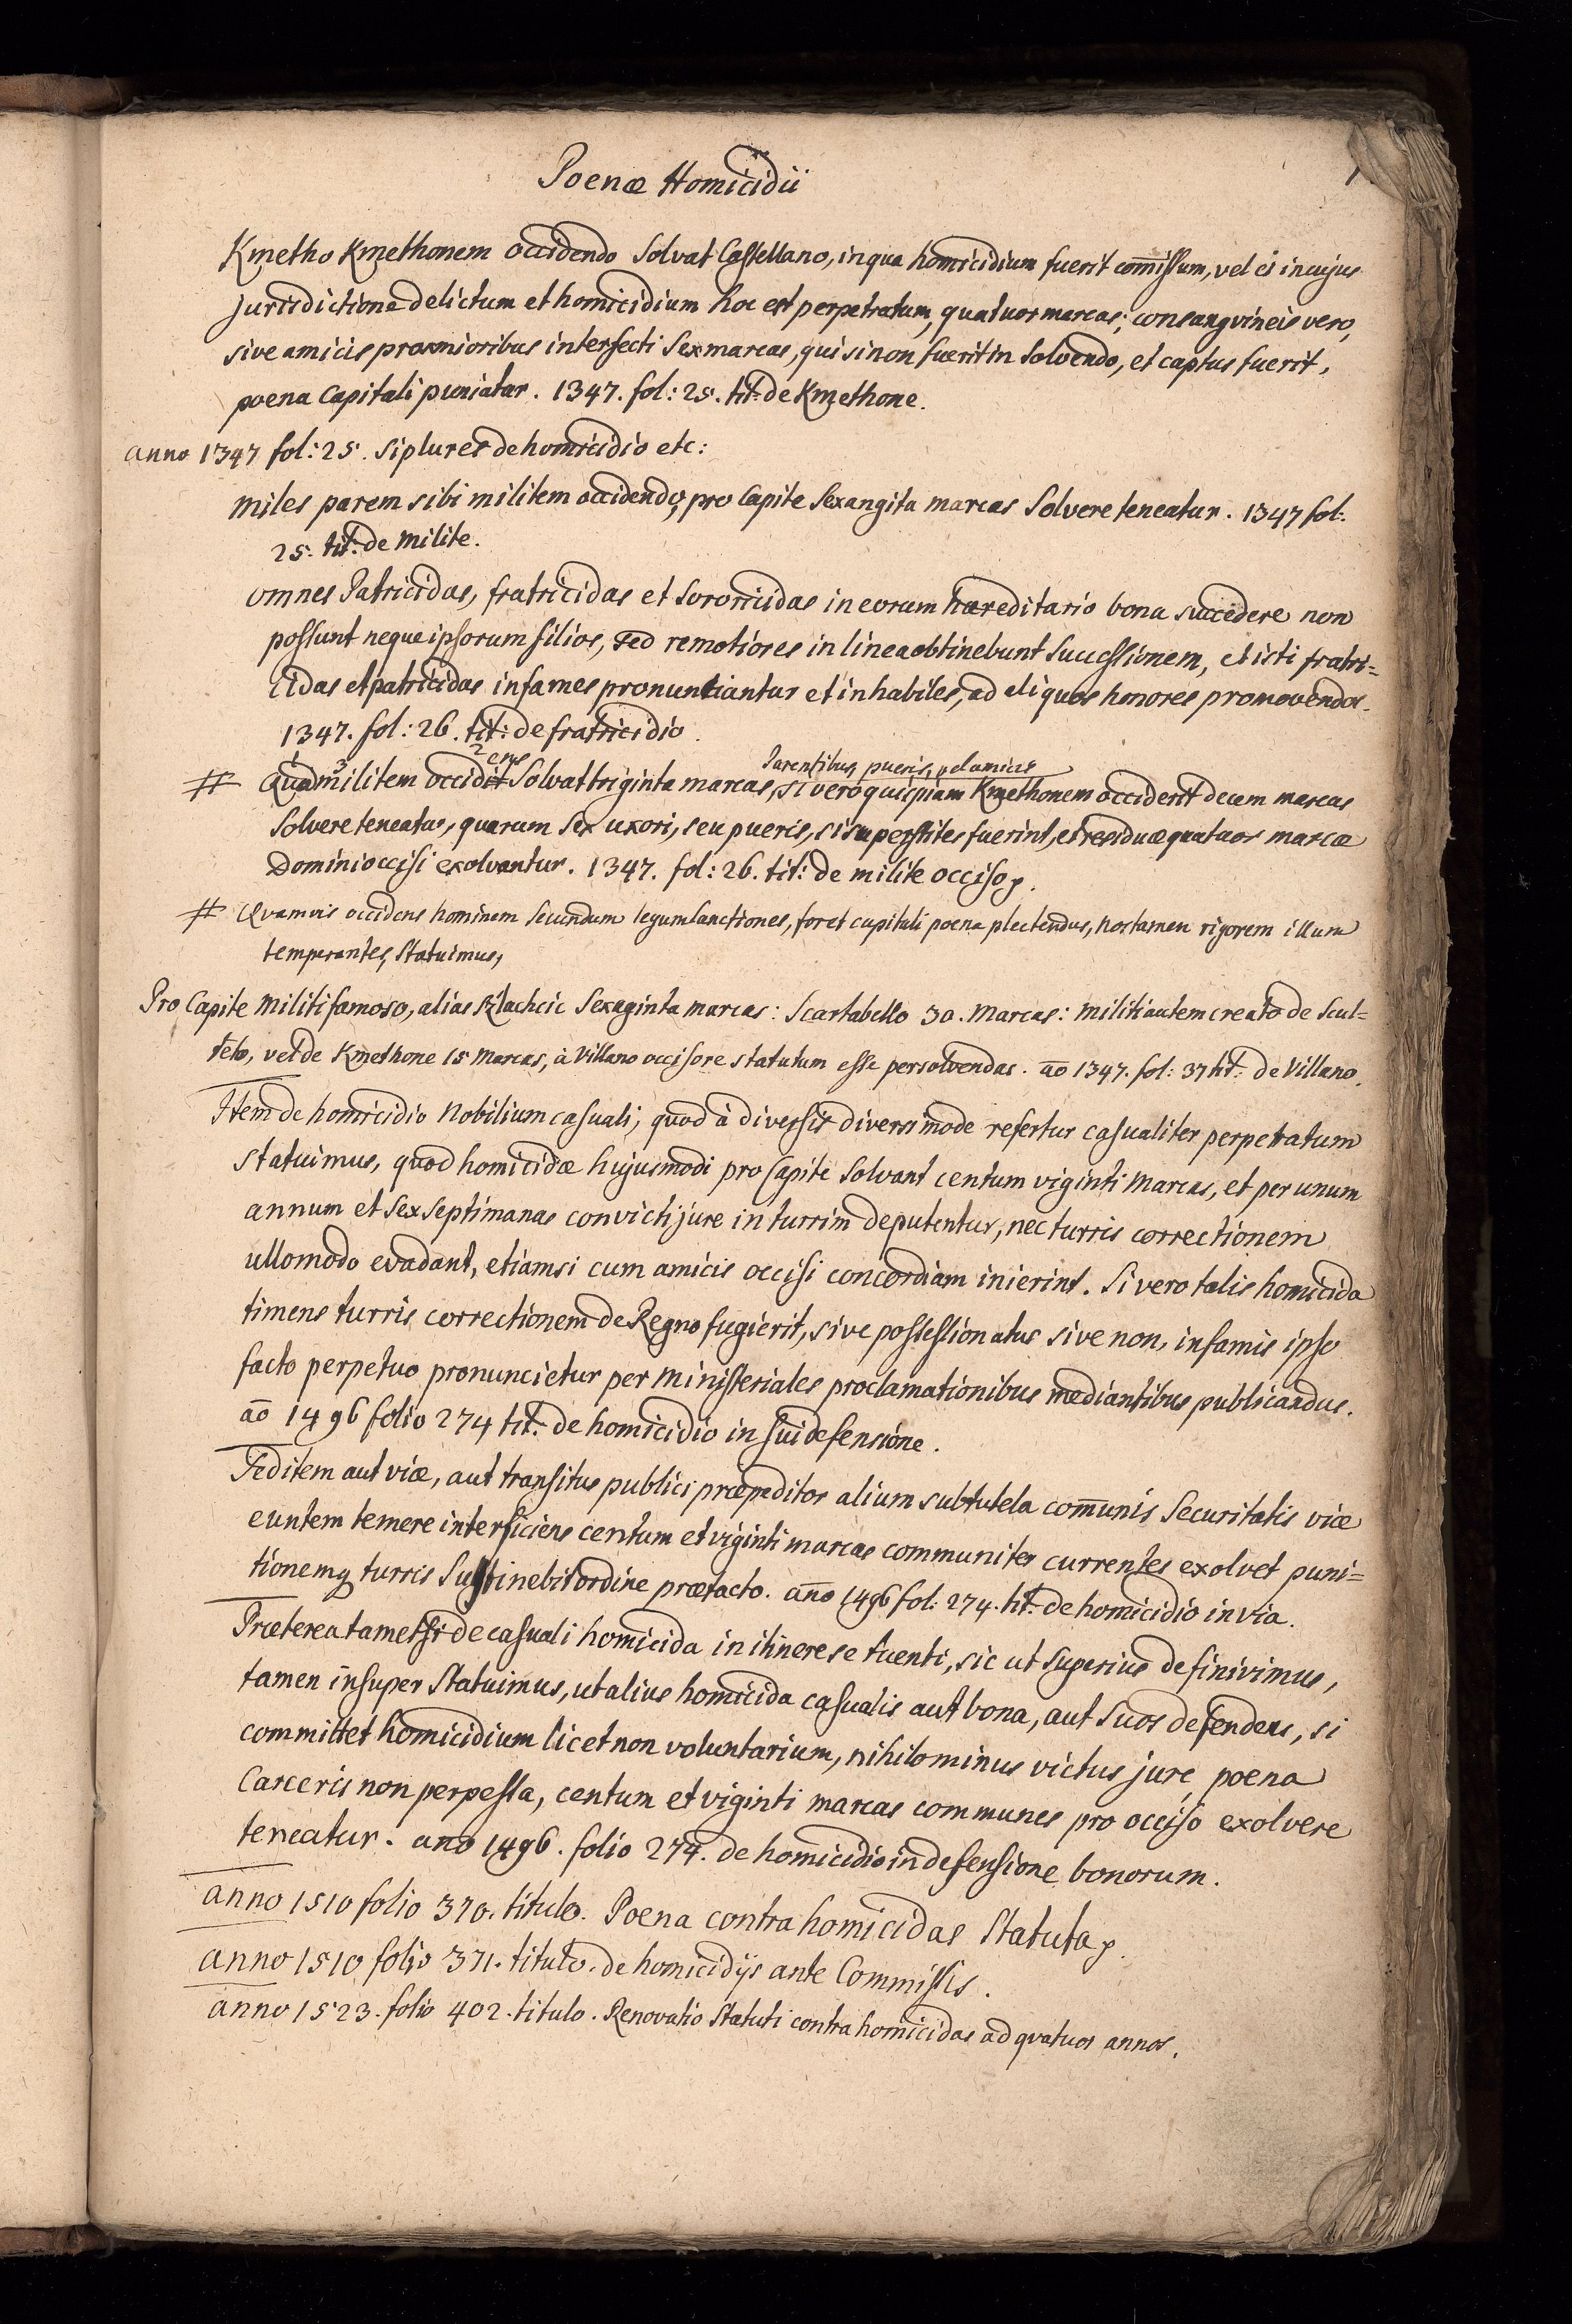 Poenæ Homicidii
Kmetho Kmethonem occidendo Solvat Castellano, in qua homicidium fuerit com̄issum, vel ei in cujus
Jurisdictione delictum et homicidium hoc est perpetratum, quatuor marcas; consangvineis vero,
sive amicis proximioribus interfecti Sex marcas, qui si non fuerit in Solvendo, et captus fuerit,
poena Capitali puniatur. 1347. fol: 25. tit: de Kmethone.
anno 1347 fol: 25. si plures de homicidio etc:
Miles parem sibi militem occidendo, pro Capite Sexangita marcas Solvere teneatur. 1347 fol:
25. tit: de Milite.
omnes Patricidas, fratricidas et Sororicidas in eorum hæreditario bona succedere non
possunt neque ipsorum filios, sed remotiores in linea obtinebunt Successionem, et isti fratri=
cidas et patricidas infames pronuntiantur et inhabiles, ad aliquos honores promovendos.
1347. fol: 26. tit: de fratricidio.
1 3 2 ens Parentibus, pueris, vel amicis
# Qua militem occidit Solvat triginta marcas, si vero quispiam Kmethonem occiderit decem marcas
Solvere teneatur, quarum Sex uxori, seu pueris, si superstites fuerint, et residuæ quatuor marcæ
Domini occisi exolvantur. 1347. fol: 26. tit: de milite occiso.
# Qvamvis occidens hominem Secundum legum Sanctiones, foret capitali poena plectendus, nos tamen rigorem illum
temperantes, Statuimus,
Pro Capite Militi famoso, alias Szlachcic Sexaginta marcas: Scartabello 30. Marcas: militi autem creato de Scul=
teto, vel de Kmethone 15 Marcas, à Villano occisore statutum esse persolvendas. aō 1347. fol: 37 tit: de Villano.
Item de homicidio Nobilium casuali, quod à diversis diversimode refertur casualiter perpetratum
Statuimus, quod homicidæ hujusmodi pro Capite Solvant centum viginti Marcas, et per unum
annum et Sex Septimanas convicti jure in turrim deputentur, nec turris correctionem
ullo modo evadant, etiamsi cum amicis occisi concordiam inierint. Si vero talis homicida
timens turris correctionem de Regno fugierit, sive possessionatus sive non, infamis ipso
facto perpetuo pronuncietur per Ministeriales proclamationibus mediantibus publicandus.
aō 1496 folio 274 tit: de homicidio in sui defensione.
Peditem aut viæ, aut transitus publici præpeditor alium sub tutela com̄unis Securitatis viæ
euntem temere interficiens centum et viginti marcas communiter currentes exolvet puni=
tionemq turris Sustinebit ordine prætacto. an̄o 1496 fol: 274. tit: de homicidio in via.
Præterea tametsi de casuali homicida in itinere se tuenti, sic ut Superius definivimus,
tamen insuper Statuimus, ut alius homicida casualis aut bona, aut Suos defendens, si
committet homicidium licet non voluntarium, nihilominus victus jure, poena
Carceris non perpessa, centum et viginti marcas communes pro occiso exolvere
teneatur. ano 1496. folio 274. de homicidio in defensione bonorum.
anno 1510 folio 370. titulo. Poena contra homicidas Statuta.
anno 1510 folio 371. titulo. de homicidijs ante Commissis.
anno 1523. folio 402. titulo. Renovatio Statuti contra homicidas ad qvatuor annos.